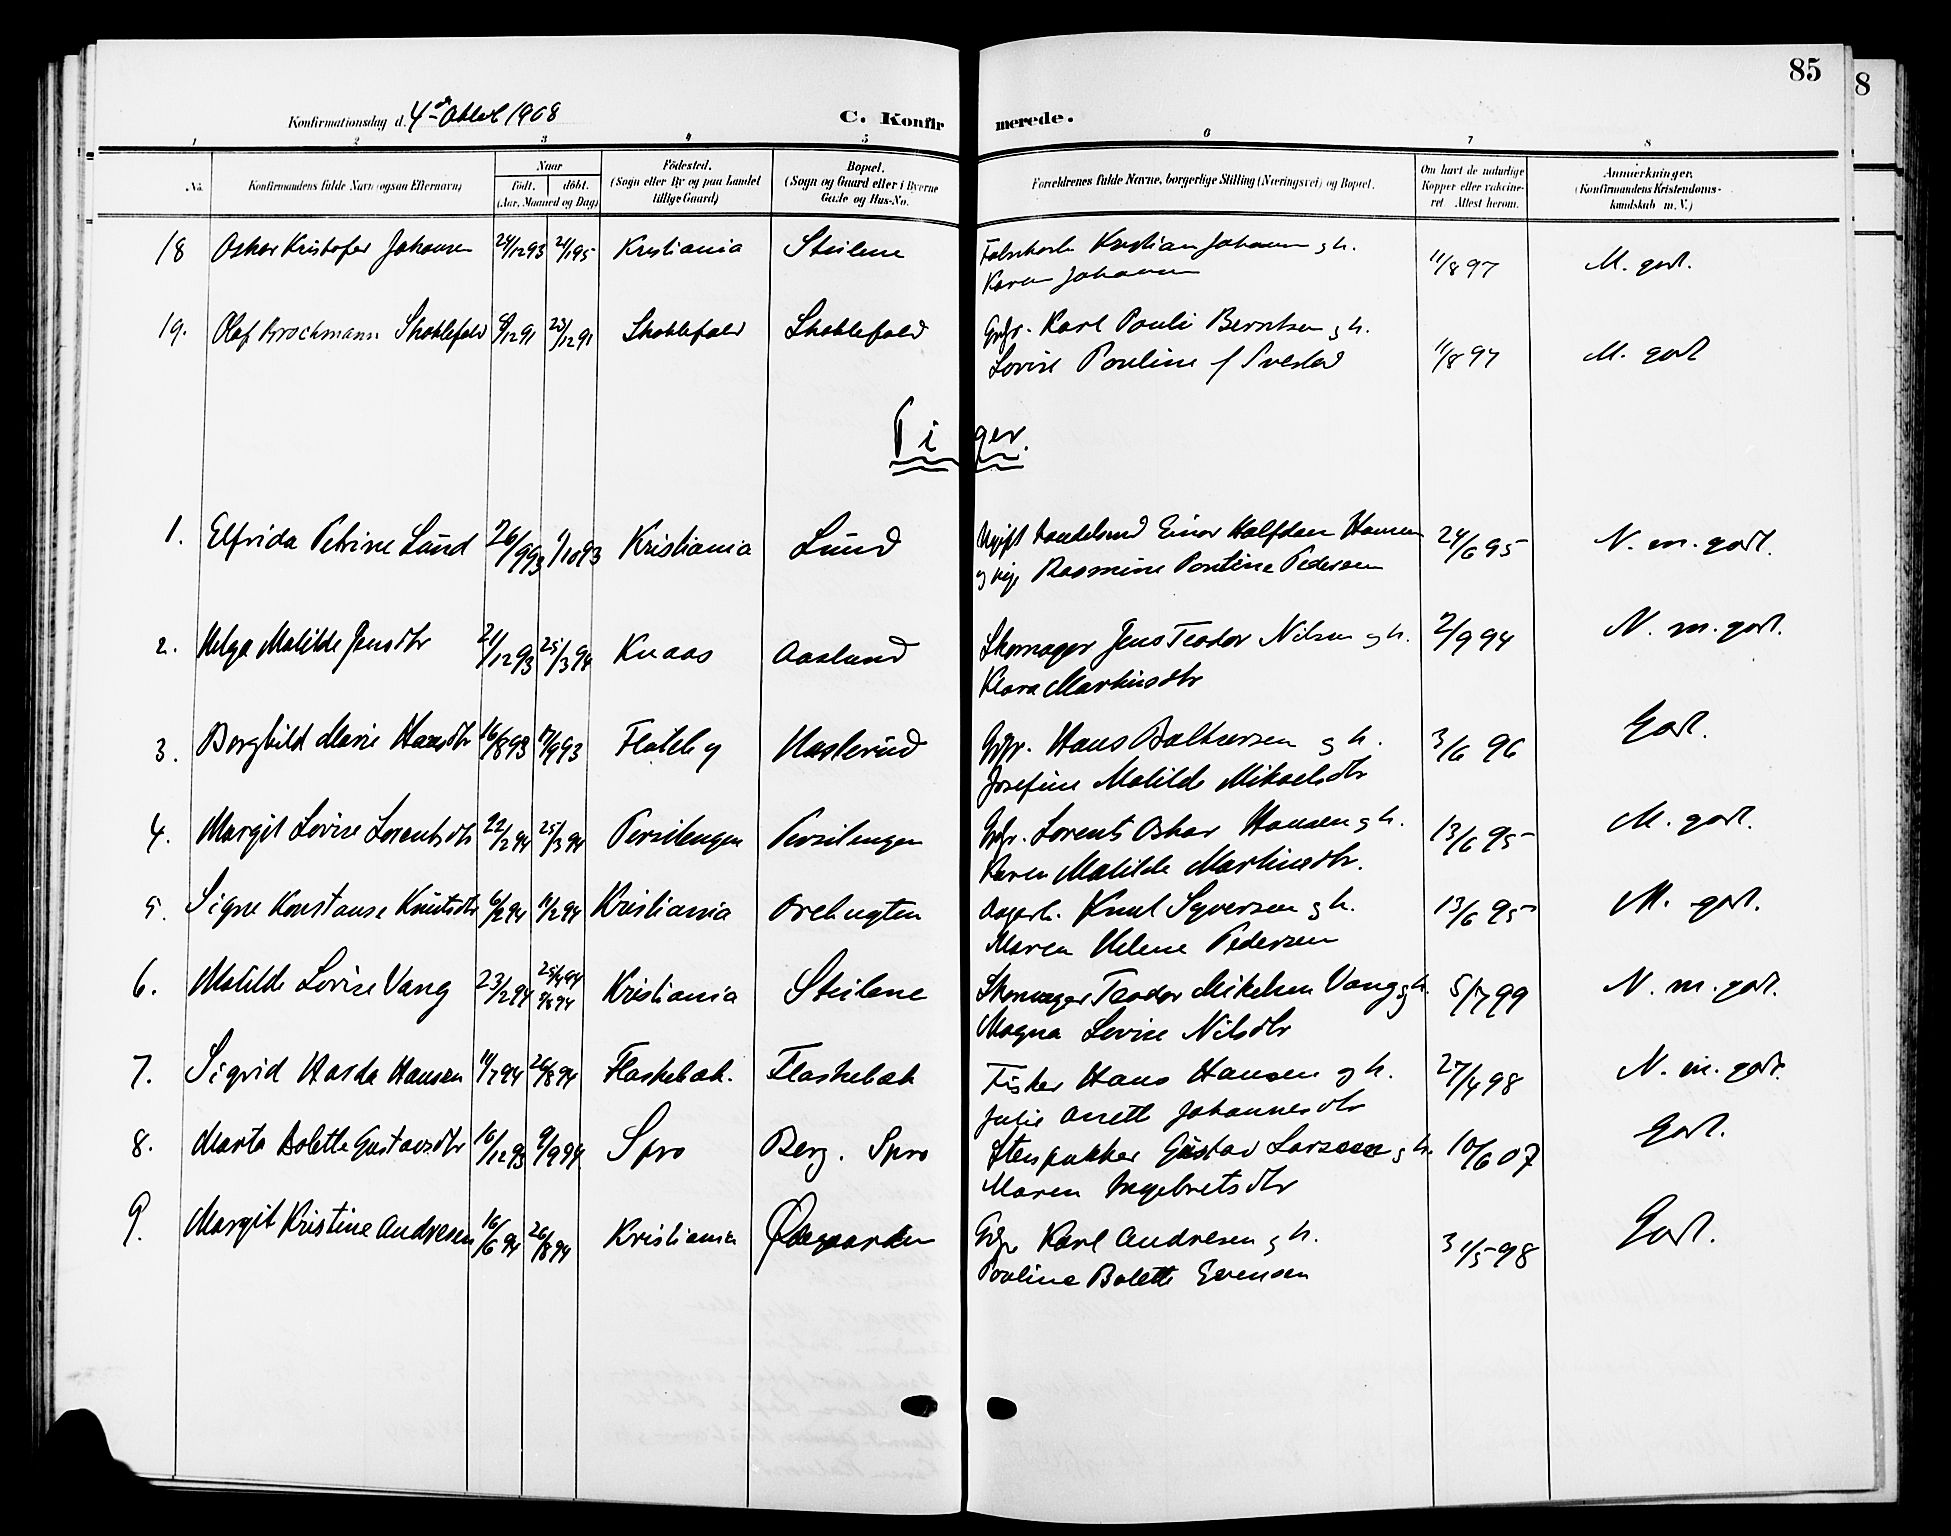 85
8
Konfirmationsdag d. 4de Oktbr 1908
C. Konfirmerede.
1 2 3 4 5 6 7 8
No. Konfirmandens fulde Navn (ogsaa Efternavn) Naar født. døbt. (Aar, Maaned og Dag) Fødested. (Sogn eller By og paa Landet tillige Gaard) Bopæl. (Sogn og Gaard eller i Byerne Gade og Hus-No. Forældrenes fulde Navne, borgerlige Stilling (Næringsvei) og Bopæl. Om havt de naturlige Kopper eller vaccineret Attest herom. Anmærkninger. (Konfirmandens Kristendomskundskab m. V.)
18 Oskar Kristofer Johansen 24/12 93 21/1 95 Kristiania Steilene Kristian Johansen g h. 11/8 97 M. godt.
Karen Johansen
19. Olaf Brochmann Skoklefald /12 91 23/12 91 Skoklefald Skoklefald Grbr. Karl Pauli Berntsen g h. 11/8 97 M. godt
Lovise Pouline f Svestad
Piger.
1. Elfrida Petrine Lund 26/9 93 1/10 93 Kristiania Lund Ugift Handelsmd Einar Halfdan Hansen 24/6 95 N. m. godt.
og pige Rasmine Pontine Pedersen
2. Helga Matilde Jensdtr 21/12 93 25/3 94 Knaas Aaslund Skomager Jens Teodor Nilsen g h. 2/9 94 N. m. godt.
Klara Martinsdtr
3. Borghild Marie Hansdtr 16/8 93 17/9 93 Flateby Hasterud Grbr. Hans Baltersen g h. 3/6 96 Godt.
Josefine Matilde Mikaelsdtr
4. Margit Lovise Lorentsdtr 22/2 94 25/3 94 Persilengen Persilengen Grbr. Lorents Oskar Hansen g h. 13/6 95 M. godt.
Karen Matilde Martinsdtr.
5. Signe Konstanse Knutsdtr 6/2 94 11/2 94 Kristiania Knut Syversen g h. 13/6 95 M. godt.
Maren Helene Pedersen
6. Matilde Lovise Vang 23/2 94 25/4 94 Kristiania Steilene Skomager Teodor Mikelsen Vang g h. 5/7 99 N. m. godt.
Magna Lovise Nilsdtr
7. Sigrid Harda Hansen 11/7 94 26/8 94 Flaskebæk. Flaskebæk Fisker Hans Hansen g h. 27/4 98 N. m. godt.
Julie Anette Johannesdtr
8. Marta Bolette Gustavsdtr 16/12 93 9/9 94 Spro Berg. Spro Stenpukker Gustav Larsen g h. 10/6 07 Godt.
Maren Ingebretsdtr
9. Margit Kristine Andresen 16/6 94 26/8 94 Kristiania Ødegaarden Grbr Karl Andresen g h. 31/5 98 Godt.
Pouline Bolette Evensen